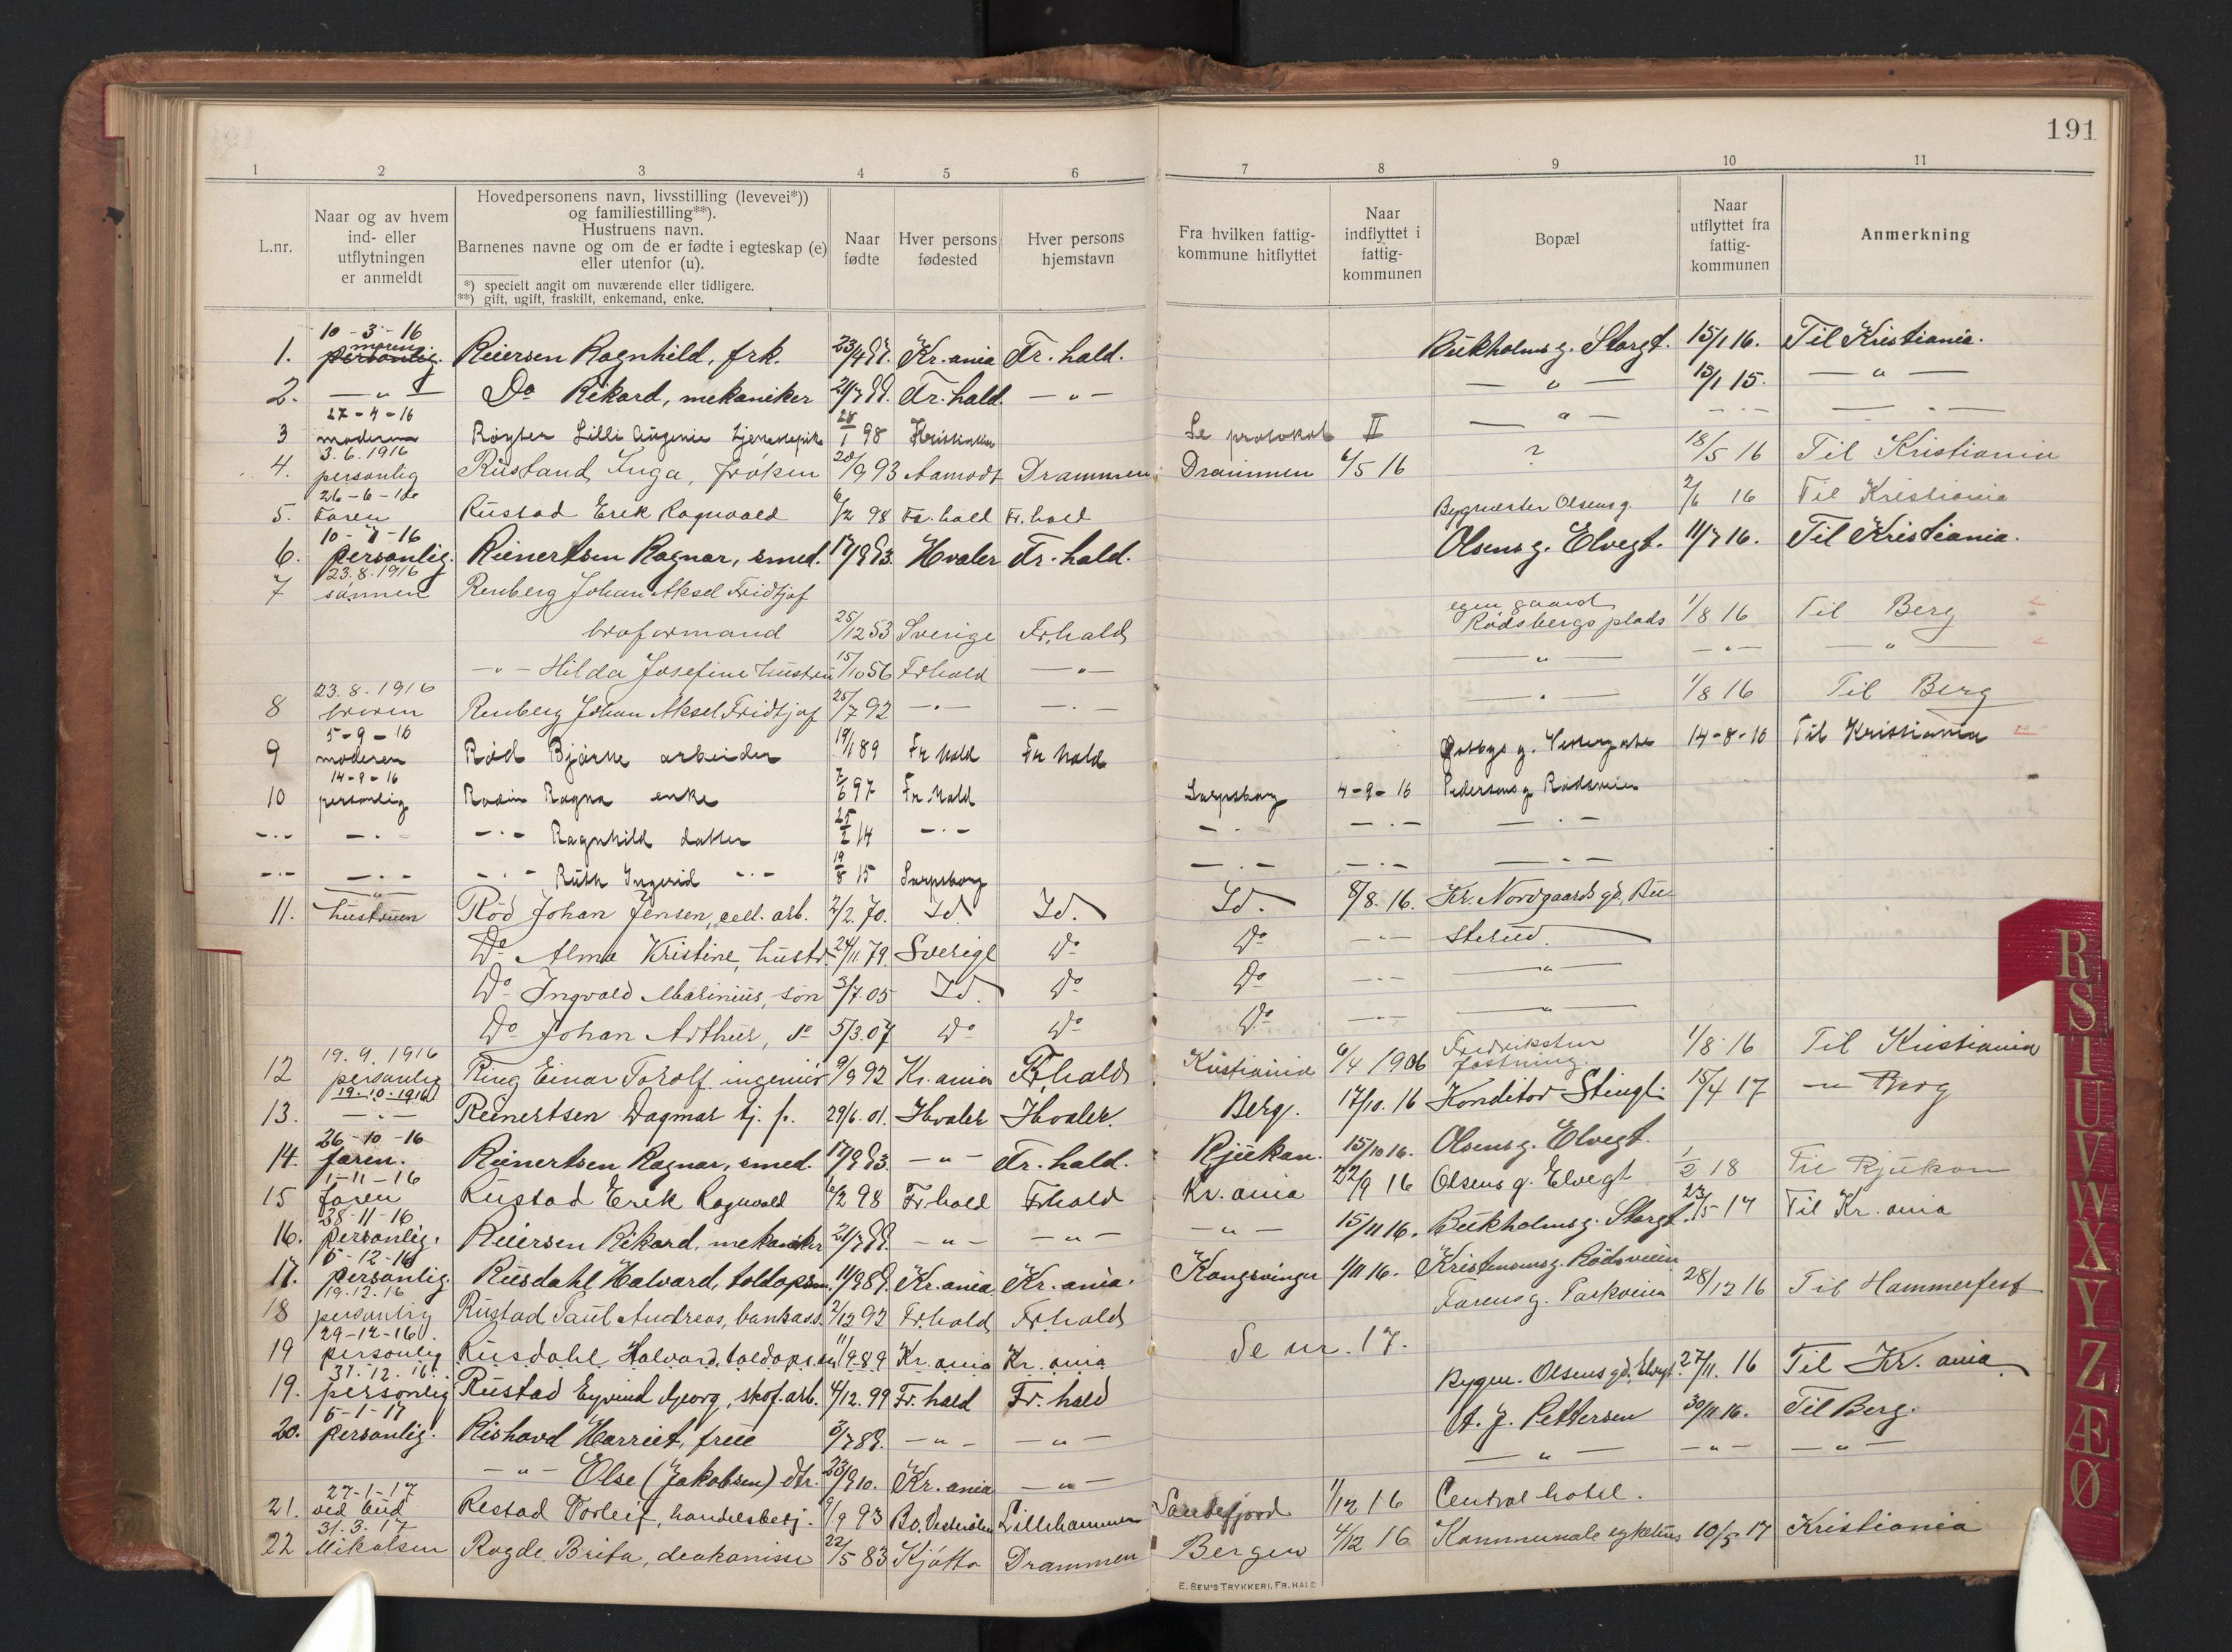 191
1 2 3 4 5 6 7 8 9 10 11
L.nr.
Naar og av hvem ind- eller utflytningen er anmeldt
Hovedpersonens navn, livsstilling (levevei*)) og familiestilling**).
Hustruens navn.
Barnenes navne og om de er fødte i egteskap (e) eller utenfor (u).
*) specielt angit om nuværende eller tidligere.
**) gift, ugift, fraskilt, enkemand, enke.
Naar fødte
Hver persons fødested
Hver persons hjemstavn
Fra hvilken fattigkommune hitflyttet
Naar indflyttet i fattigkommunen
Bopæl
Naar utflyttet fra fattigkommunen
Anmerkning
10-3-16
1. personlig. moren Reiersen Ragnhild, frk. Kr.ania Fr.hald. Bukholms g. Storgt. 15/1 16. Til Kristiania.
2. —"— Do Rikard, mekaniker Fr.hald. —"— —"— 13/1 15. —"—
27-4-16
3 moderen Lilli tjenestepike 28/1 98 Kristiania Se protokol II
3.6.1916
4. personlig Rustand Inga, frøken 20/9 93 Aamodt Drammen Drammen 6/5 16 ? 18/5 16 Til Kristiania
26-6-16
5. Faren Rustad Erik Ragnvald 6/2 98 Fr.hald Fr.hald Bygmester Olsens g. 2/6 16 Til Kristiania
10-7-16
6. personlig. Reinertsen Ragnar, smed. Hvaler Fr.hald. Olsens g. Elvegt. 11/7 16. Til Kristiania.
23.8.1916
7 sønnen Renberg Johan Aksel Fridtjof
broformand 25/12 53 Sverige Fr.hald egen gaard Rødsbergs plads 1/8 16 Til Berg
—"— Hilda Josefine hustru 15/10 56 Frhald —"— —"— —"— —"—
23.8.1916
8 broren Renberg Johan Aksel Fridtjof 25/7 92 —"— —"— —"— 1/8 16 Til Berg
5-9-16
9 moderen Rød Bjarne arbeider 19/1 89 Fr hald Fr hald Østbys g. 14-8-16 Til Kristiania
14-9-16
10 personlig Ragna enke 97 Fr.hald Sarpsborg 4-9-16 Pedersens g Rødsveien
—"— —"— —"— Ragnhild datter 25/2 14 —"— —"— —"— —"—
—"— —"— —"— Ruth Ingerid —"— 19/8 15 Sarpsborg —"— —"— —"—
11. hustruen Rød Johan Jensen, cell. arb. 2/2. 70. Id Id. Id. 8/8. 16. Kr. Nordgaards gd., Bu-
Do Alma Kristine, hustr. 24/11. 79. Sverige Do Do —"— sterud.
Do Ingvald Marinius, søn 3/7. 05 Id. Do Do —"— —"—
Do Johan Arthur, do 5/3. 07 Do Do Do —"— —"—
19.9.1916
12 personlig Ring Einar Torolf ingeniør 9/9 92 Kr.ania Frhald Kristiania 6/4 1906 Fredriksten fæstning. 1/8 16 Til Kristiania
19.10.1916
13. —"— Reinertsen Dagmar tj. p. 29/6. 01. Hvaler Hvaler. Berg. 17/10. 16 Konditor Stingl. 15/4 17 —"— Berg
26-10-16
14. faren. Reinertsen Ragnar, smed. —"— Fr.hald. Rjukan. 15/10 16. Olsens g. Elvegt. 1/2 18 Til Rjukan
1-11-16
15 Faren Rustad Erik Ragnvald 6/2 98 Fr.hald Frhald Kr.ania 22/9 16 Olsens g. Elvegt 23/5 17 Til Kr.ania
28-11-16
16. Personlig. Reiersen Rikard, mekaniker —"— —"— —"— 15/11 16. Bukholms g. Storgt.
5-12-16
17. Personlig. Rusdahl Halvard, toldopsm. Kr.ania. Kr.ania. Kongsvinger 1/11 16. Kristensens g. Rødsveien
19.12.16
18 personlig Rustad Paul Andreas, bankass. 2/12 92 Frhald Frhald Farens g. Parkveien 28/12 16 Til Hammerfest
29-12-16
19 personlig Rusdahl Halvard, toldops.m 11/9-89 Kr.ania Kr.ania Se nr. 17.
31.12.16.
19. personlig Rustad Eyvind Georg, skof.arb. 4/12. 99 Fr.hald Fr.hald Bygm. Olsens gd. Elvegt. 27/11. 16 Til Kr.ania
5-1-17
20. personlig. Rishavd Harriet, frue —"— —"— A. J. Pettersen 30/11 16. Til Berg.
—"— Else (Jakobsen) dtr. Kr.ania —"— —"— —"— —"—
27-1-17
21. ved bud Restad Torleif, handelsbetj. 9/9 93 Lillehammer Sandefjord 1/12 16 Central hotel.
31.3.17
22 Mikalsen Ragde Brita, diakonisse 22/5 83 Drammen Bergen 4/12 16 Kommunale sykehus 10/3 17 Kristiania
E. SEM'S TRYKKERI, FR.HALD
R
S
T
U
V
W
X
Y
Z
Æ
Ø